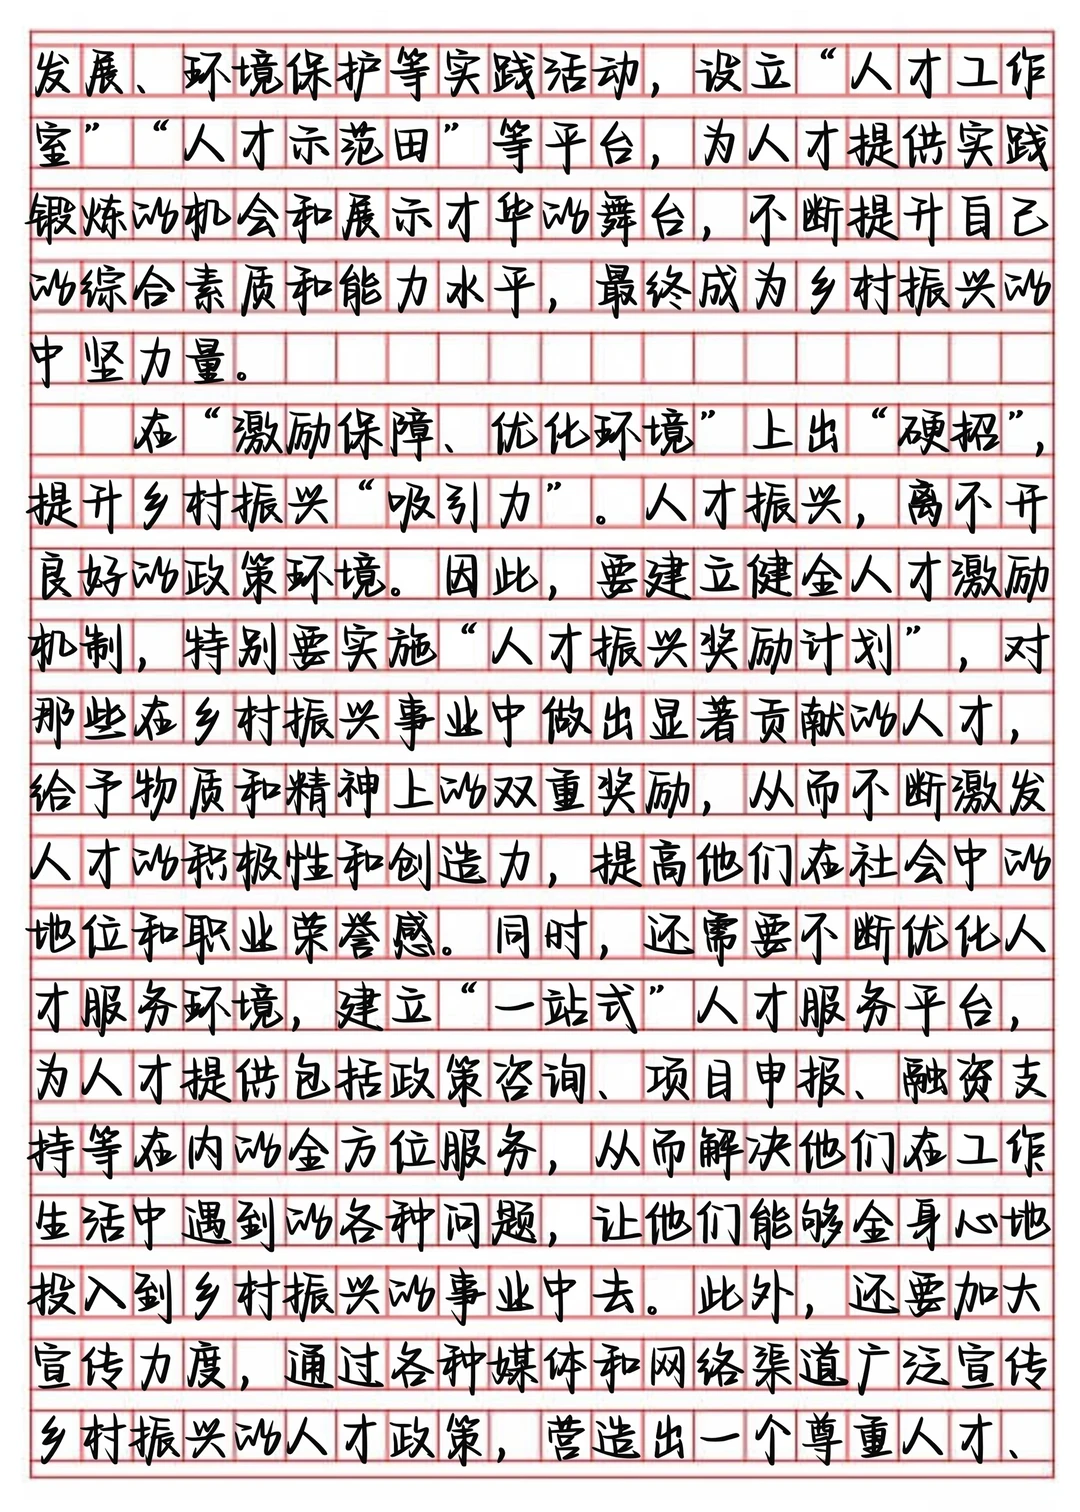 发展、环境保护等实践活动，设立“人才工作
室”“人才示范田”等平台，为人才提供实践
锻炼的机会和展示才华的舞台，不断提升自己
的综合素质和能力水平，最终成为乡村振兴的
中坚力量。
在“激励保障、优化环境”上出“硬招”，
提升乡村振兴“吸引力”。人才振兴，离不开
良好的政策环境。因此，要建立健全人才激励
机制，特别要实施“人才振兴奖励计划”，对
那些在乡村振兴事业中做出显著贡献的人才，
给予物质和精神上的双重奖励，从而不断激发
人才的积极性和创造力，提高他们在社会中的
地位和职业荣誉感。同时，还需要不断优化人
才服务环境，建立“一站式”人才服务平台，
为人才提供包括政策咨询、项目申报、融资支
持等在内的全方位服务，从而解决他们在工作
生活中遇到的各种问题，让他们能够全身心地
投入到乡村振兴的事业中去。此外，还要加大
宣传力度，通过各种媒体和网络渠道广泛宣传
乡村振兴的人才政策，营造出一个尊重人才、